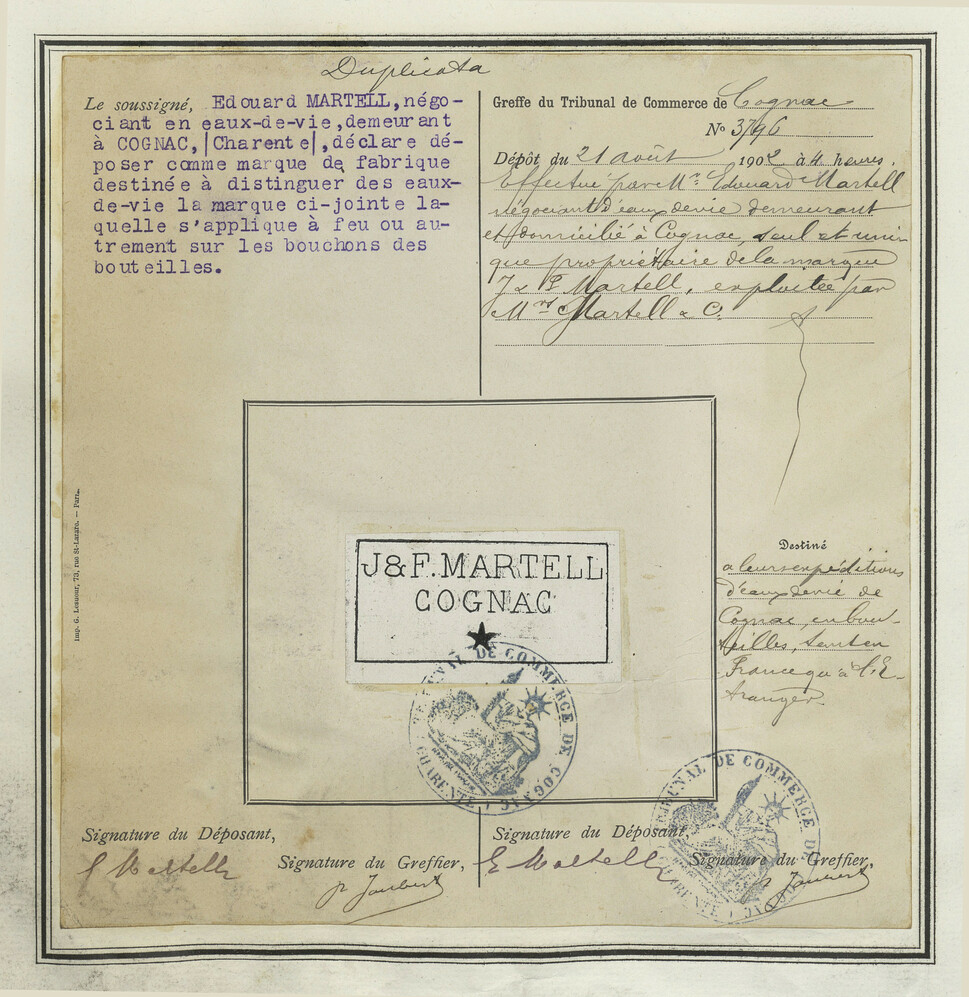 Duplicata
Le soussigné, Edouard MARTELL, négo-
ciant en eaux-de-vie, demeurant
à COGNAC, |Charente|, déclare dé-
poser comme marque de fabrique
destinée à distinguer des eaux-
de-vie la marque ci-jointe la-
quelle s'applique à feu ou au-
trement sur les bouchons des
bouteilles.
Greffe du Tribunal de Commerce de Cognac
No 3796
Dépôt du 21 août 1902 à 4 heures.
Effectué par Mr. Edouard Martell
négociant d'eaux devie demeurant
et domicilié à Cognac, seul et uni-
que propriétaire de la marque
J & F Martell, exploitée par
Mrs Martell & C.
J&F.MARTELL
COGNAC
Destiné
a leurs expéditions
d'eaux devie de
Cognac, en bou-
teilles, tant en
France qu'à l'É-
tranger.
Imp. G. Lesueur, 73, rue St-Lazare. — Paris.
TRIBUNAL DE COMMERCE DE COGNAC
CHARENTE
TRIBUNAL DE COMMERCE DE COGNAC
CHARENTE
Signature du Déposant,
E Martell
Signature du Greffier,
Joubert
Signature du Déposant,
E Martell
Signature du Greffier,
Joubert